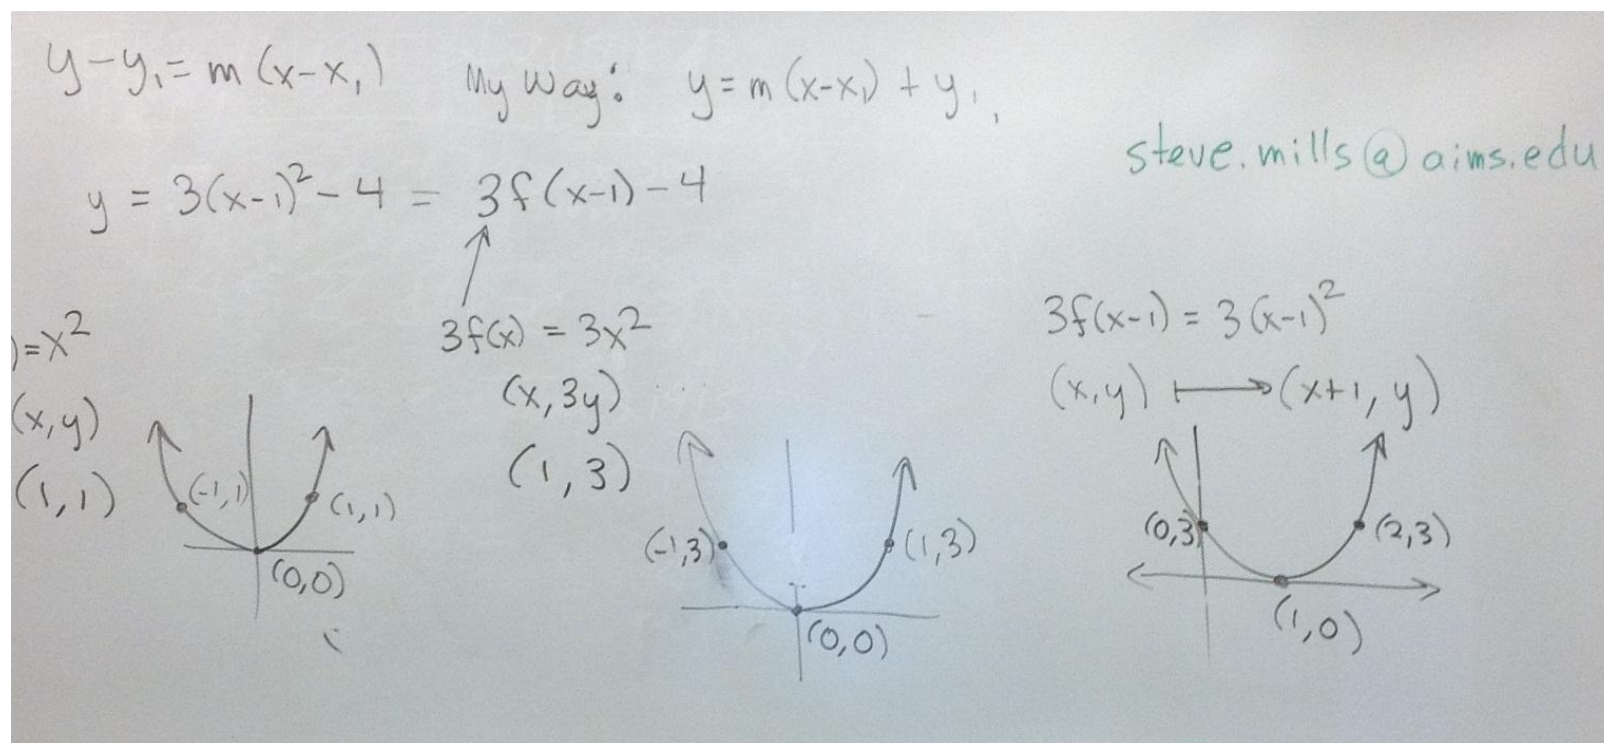 y-y₁=m(x-x₁) My Way: y=m(x-x₁)+y₁
steve.mills@aims.edu
y = 3(x-1)²-4 = 3f(x-1)-4
)=x²
(x,y)
(1,1)
(-1,1)
(1,1)
(0,0)
3f(x) = 3x²
(x,3y)
(1,3)
(-1,3)
(1,3)
(0,0)
3f(x-1) = 3(x-1)²
(x,y) ⟼ (x+1,y)
(0,3)
(2,3)
(1,0)